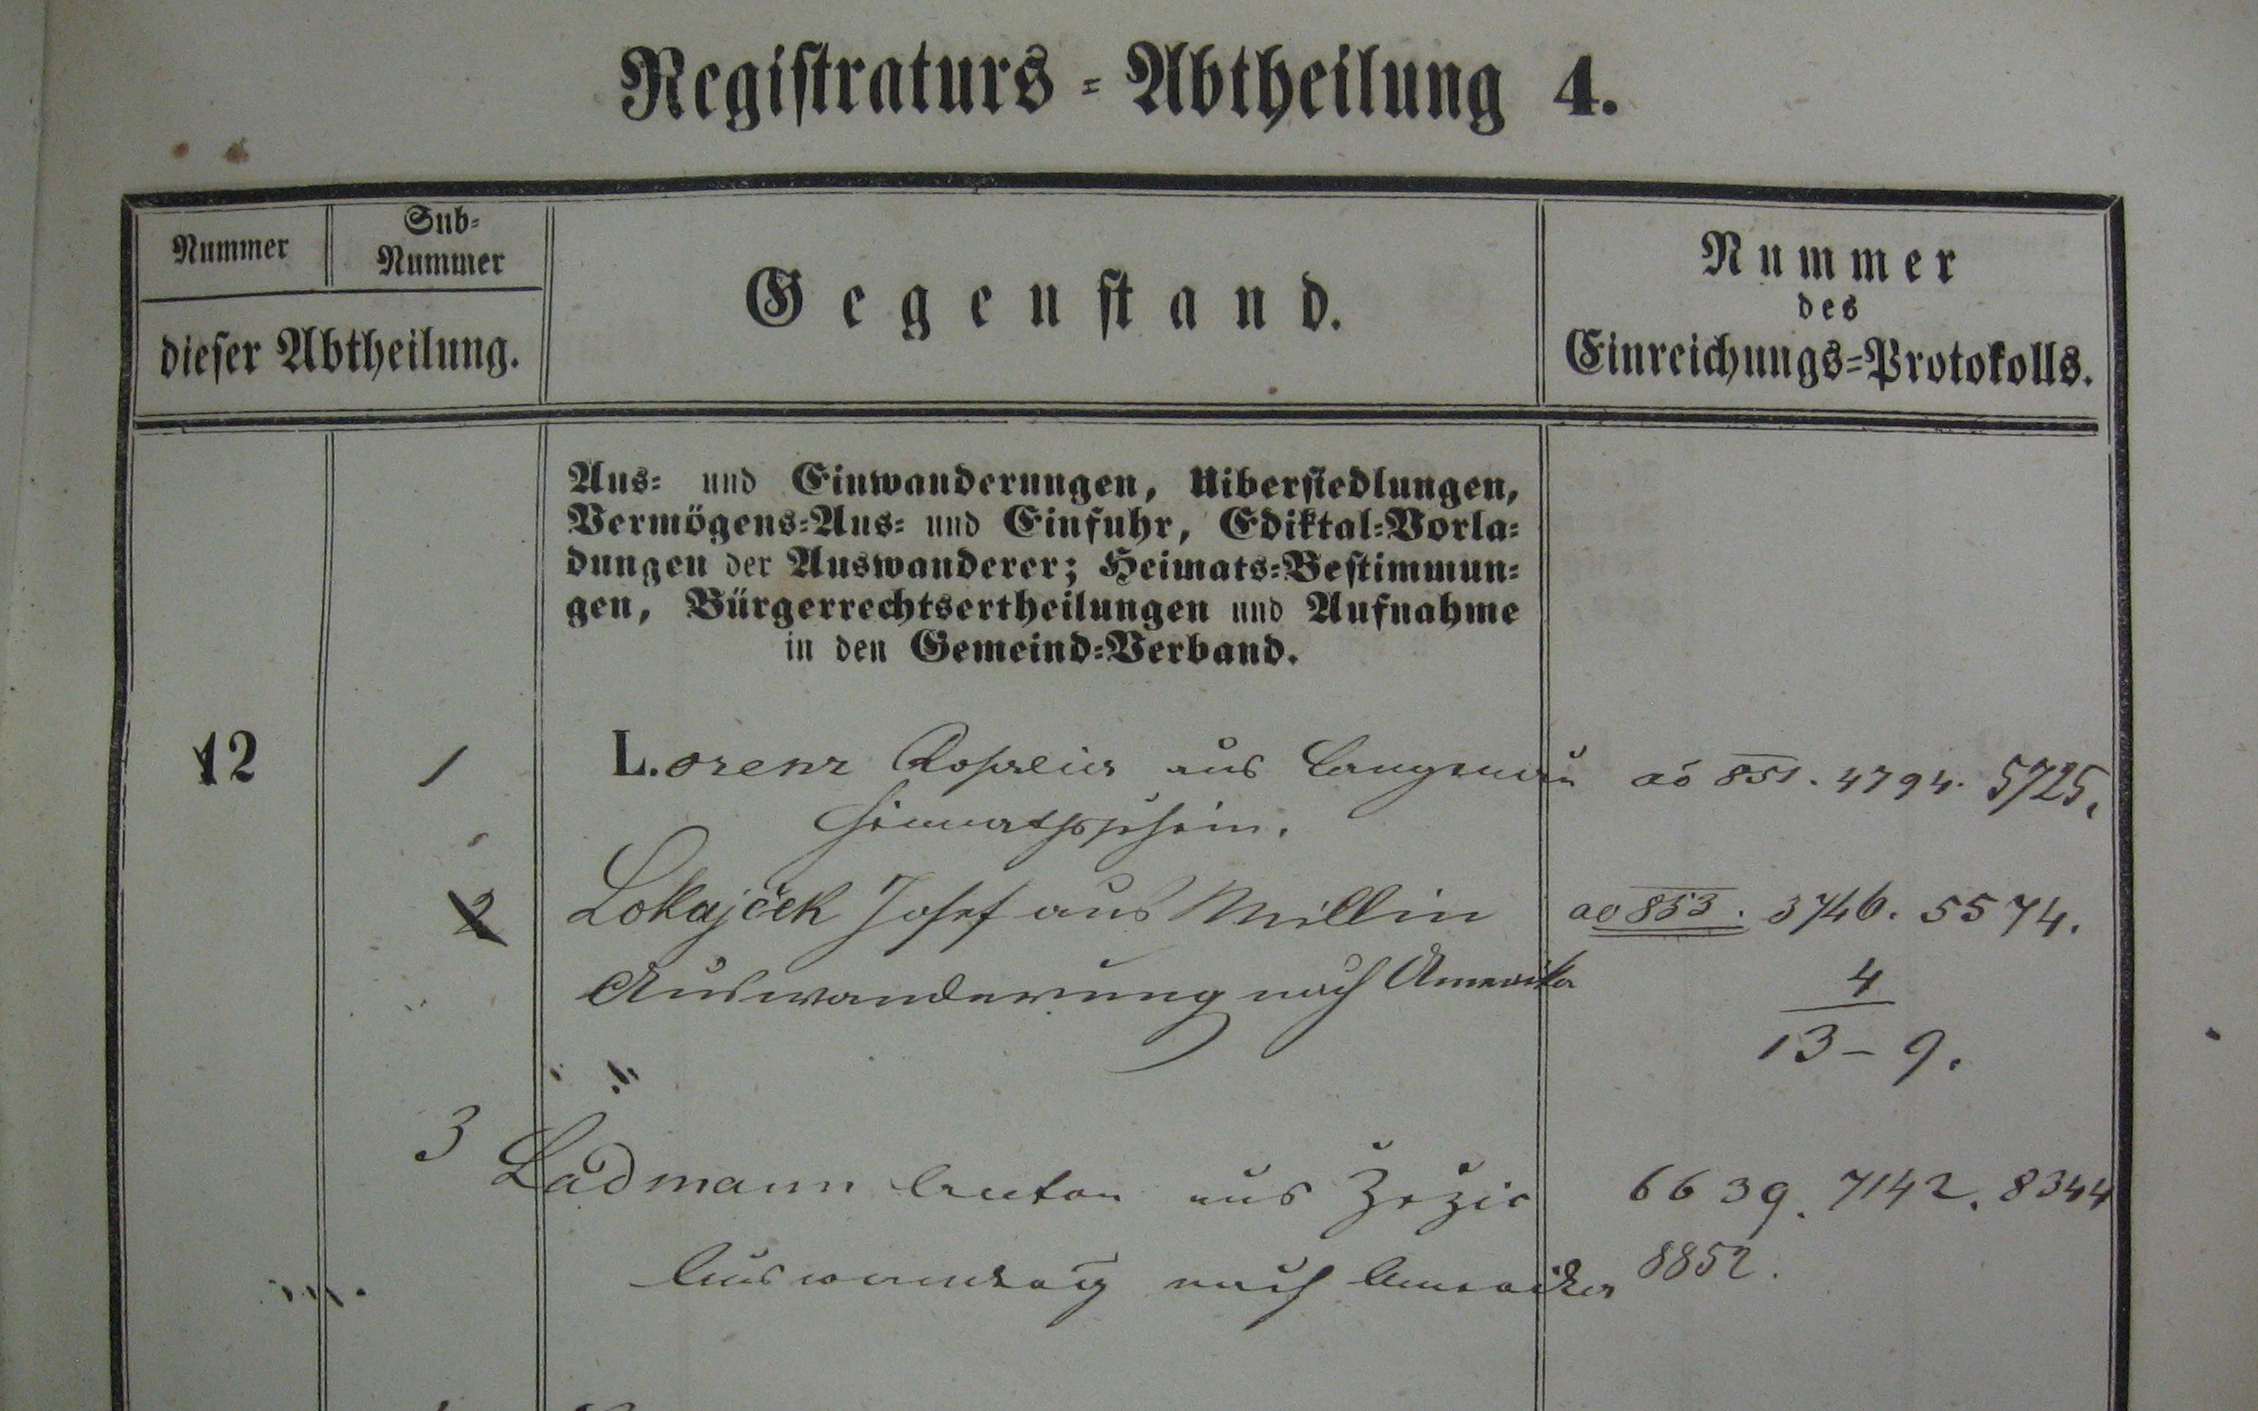 Registraturs-Abtheilung 4.
Nummer
Sub-
Nummer
dieser Abtheilung.
Gegenstand.
Nummer
des
Einreichungs-Protokolls.
Aus- und Einwanderungen, Uibersiedlungen,
Vermögens-Aus- und Einfuhr, Ediktal-Vorla-
dungen der Auswanderer; Heimats-Bestimmun-
gen, Bürgerrechtsertheilungen und Aufnahme
in den Gemeind-Verband.
12 1 Lorenz aus Langenau ao 851. 4794. 5725.
Heimathsschein.
2 Lokajček Josef aus Millin ao 853. 3746. 5574.
Auswanderung nach Amerika 4
13-9.
3 Ladmann Anton aus Žežic 6639. 7142. 8344
Auswanderg nach Amerika 8852.